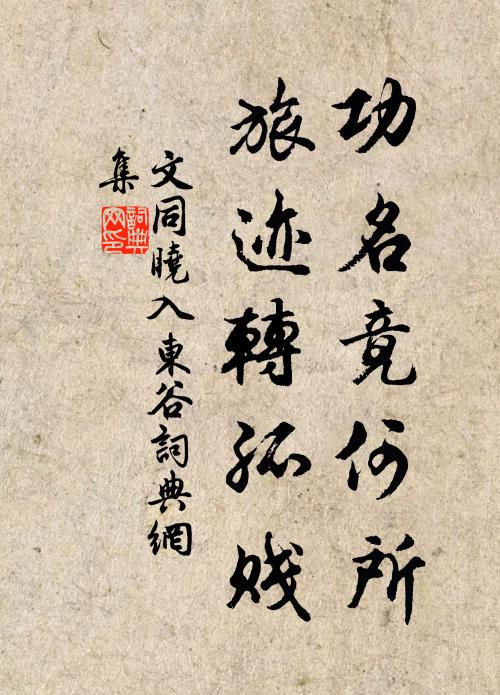 功名竟何所
旅迹轉孤賤
文同曉入東谷詞典網
集
詞典
网印